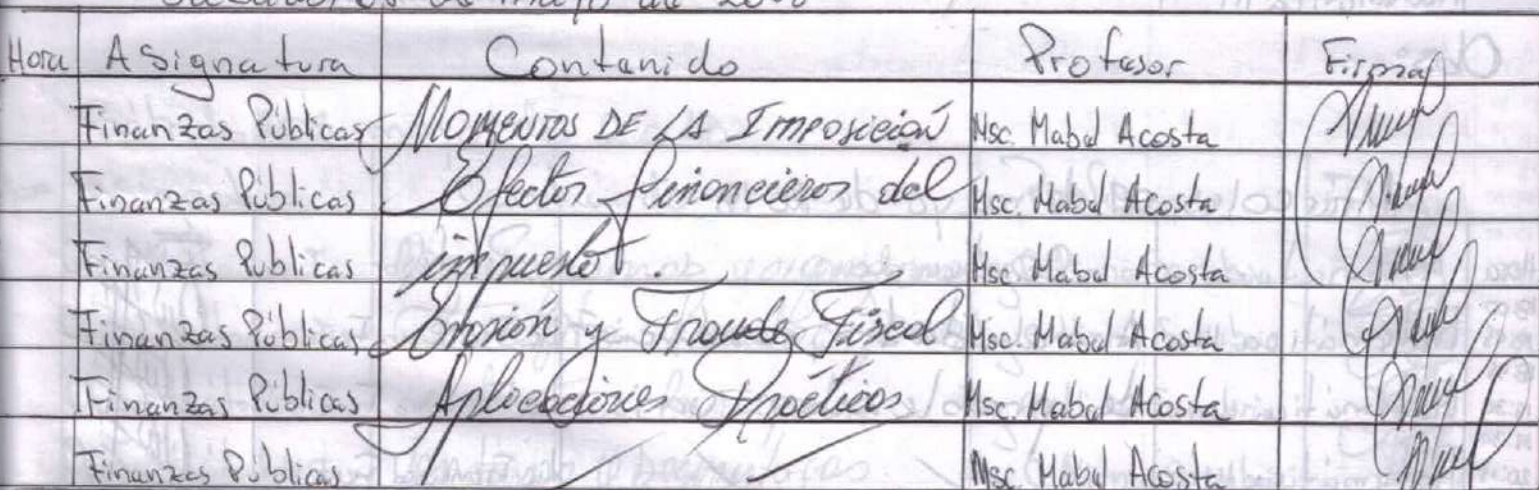 de mayo de
Hora Asignatura Contenido Profesor Firma
Finanzas Públicas MOMENTOS DE LA IMPOSICIÓN Msc. Mabel Acosta
Finanzas Públicas Efectos financieros del Msc. Mabel Acosta
Finanzas Publicas impuesto. Msc. Mabel Acosta
Finanzas Públicas y Fraude Fiscal Msc. Mabel Acosta
Finanzas Públicas Aplicaciones Prácticas Msc. Mabel Acosta
Finanzas Públicas Msc. Mabel Acosta